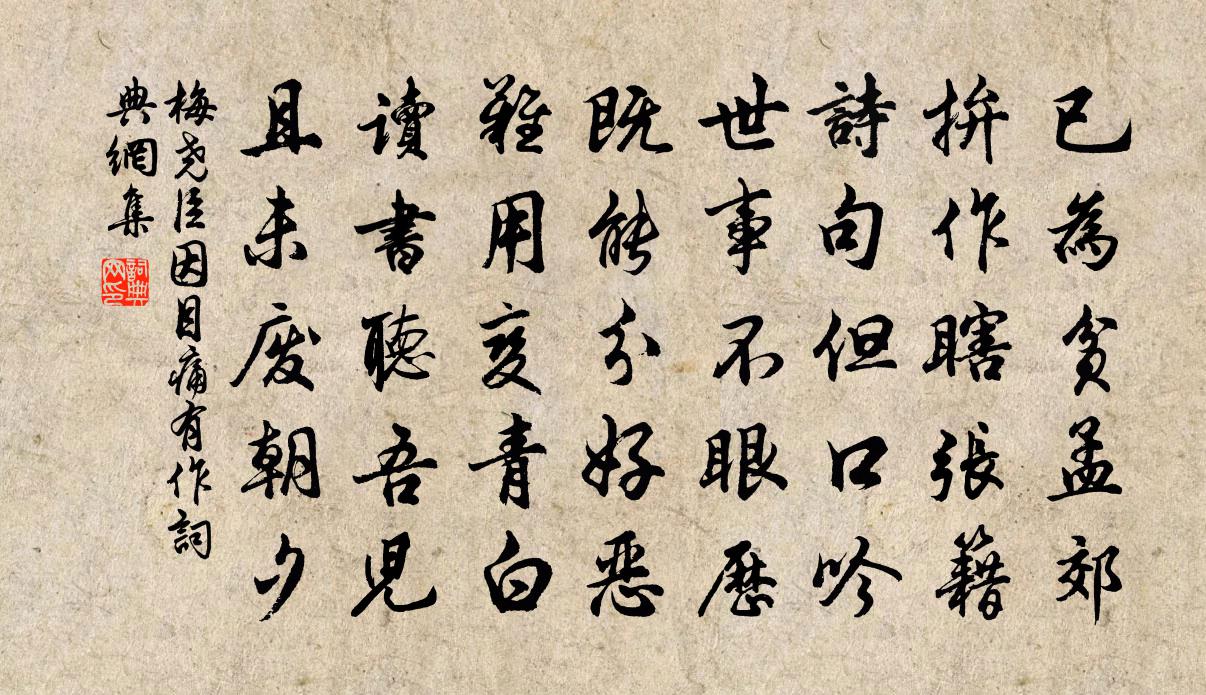 已為貧孟郊
拚作瞎張籍
詩句但口吟
世事不眼歷
既能分好惡
難用变青白
讀書聽吾兒
且未废朝夕
梅尧臣因目痛有作詞
典網集
詞典
网印